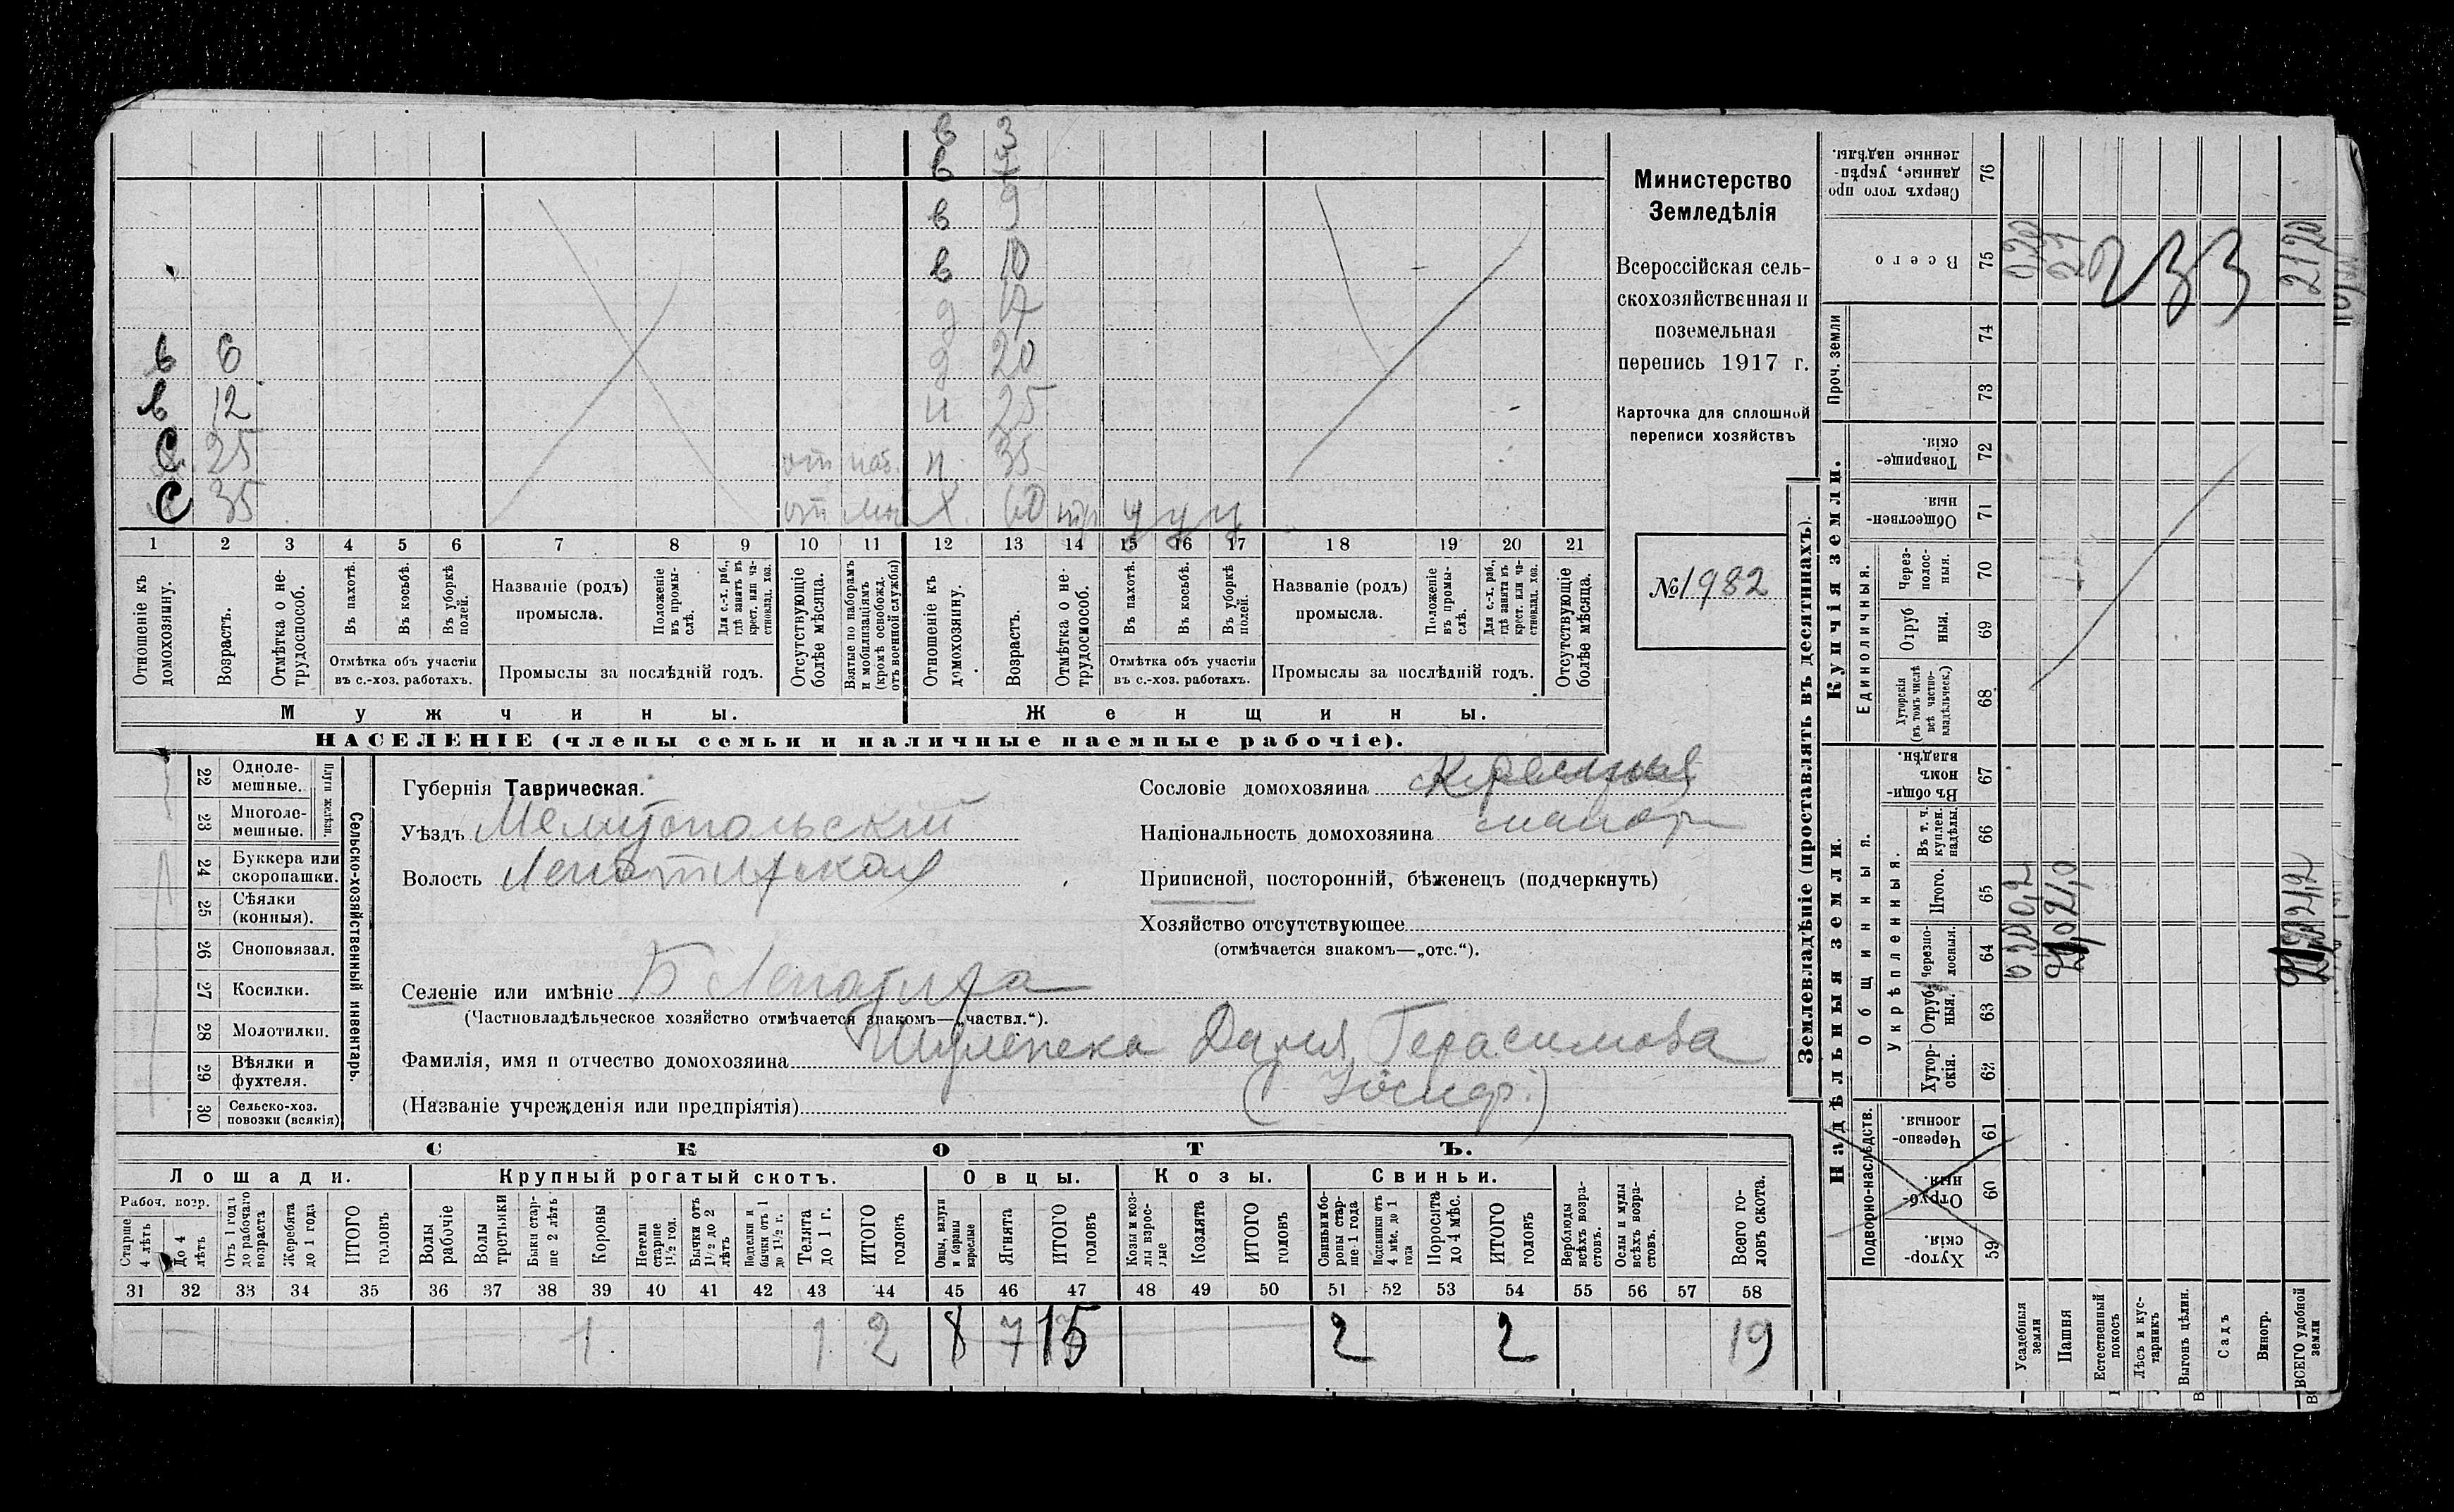 в 3
в 7
в 9
в 10
д 17
в 6 д 20
в 12 н 25
С 25 от наб. н. 35
С 35 от Х 60 у у у
1 2 3 4 5 6 7 8 9 10 11 12 13 14 15 16 17 18 19 20 21
Отношеніе къ домохозяину.
Возрастъ.
Отмѣтка о нетрудоспособ.
Въ пахотѣ.
Въ косьбѣ.
Въ уборкѣ полей.
Отмѣтка объ участіи въ с.-хоз. работахъ.
Названіе (родъ) промысла.
Положеніе въ промыслѣ.
Для с.-х. раб., гдѣ занятъ въ крест. или частновлад. хоз.
Промыслы за послѣдній годъ.
Отсутствующіе болѣе мѣсяца.
Взятые по наборамъ и мобилизаціямъ (кромѣ освобожд. отъ военной службы)
Отношеніе къ домохозяину.
Возрастъ.
Отмѣтка о нетрудоспособ.
Въ пахотѣ.
Въ косьбѣ.
Въ уборкѣ полей.
Отмѣтка объ участіи въ с.-хоз. работахъ.
Названіе (родъ) промысла.
Положеніе въ промыслѣ.
Для с.-х. раб., гдѣ занята въ крест. или частновлад. хоз.
Промыслы за послѣдній годъ.
Отсутствующіе болѣе мѣсяца.
Мужчины. Женщины.
НАСЕЛЕНІЕ (члены семьи и наличные наемные рабочіе).
Министерство
Земледѣлія
Всероссійская сель-
скохозяйственная и
поземельная
перепись 1917 г.
Карточка для сплошной
переписи хозяйствъ
№ 1982
22 Однолемешные.
23 Многолемешные.
Плуги желѣзн.
24 Буккера или скоропашки.
25 Сѣялки (конныя).
26 Сноповязал.
27 Косилки.
28 Молотилки.
29 Вѣялки и фухтеля.
30 Сельско-хоз. повозки (всякія)
Сельско-хозяйственный инвентарь.
Губернія Таврическая.
Уѣздъ Мелитопольскій
Волость Лепатихская
Сословіе домохозяина
Національность домохозяина малор
Приписной, посторонній, бѣженец (подчеркнуть)
Хозяйство отсутствующее
(отмѣчается знакомъ—„отс.“).
Селеніе или имѣніе Б Лепатиха
(Частновладѣльческое хозяйство отмѣчается знакомъ—„частвл.“).
Фамилія, имя и отчество домохозяина Шулепека Дарія Герасимова
(Названіе учрежденія или предпріятія) (Іосиф.)
СКОТЪ.
Лошади. Крупный рогатый скотъ. Овцы. Козы. Свиньи.
Рабоч. возр.
Старше 4 лѣтъ
До 4 лѣтъ
Отъ 1 года до рабочаго возраста
Жеребята до 1 года
ИТОГО головъ
Волы рабочіе
Волы третьяки
Быки старше 2 лѣтъ
Коровы
Нетели старше 1½ год.
Бычки отъ 1½ до 2 лѣтъ
Подтелки и бычки отъ 1 до 1½ г.
Телята до 1 г.
ИТОГО головъ
Овцы, валухи и бараны взрослые
Ягнята
ИТОГО головъ
Козы и козлы взрослые
Козлята
ИТОГО головъ
Свиньи и боровы старше 1 года
Подсвинки отъ 4 мѣс. до 1 года
Поросята до 4 мѣс.
ИТОГО головъ
Верблюды всѣхъ возрастовъ.
Ослы и мулы всѣхъ возрастовъ.
Всего головъ скота.
31 32 33 34 35 36 37 38 39 40 41 42 43 44 45 46 47 48 49 50 51 52 53 54 55 56 57 58
1 1 2 8 7 15 2 2 19
Землевладѣніе (проставлять въ десятинахъ).
Надѣльныя земли. Купчія земли. Проч. земли
Подворно-наслѣдств.
Общинныя.
Укрѣпленныя.
Единоличныя.
Хуторскія. 59
Отрубныя. 60
Черезполосныя. 61
Хуторскія. 62
Отрубныя. 63
Черезполосныя. 64
Итого. 65
Въ т. ч. куплен. надѣлы. 66
Въ общинномъ владѣн. 67
Хуторскія (въ томъ числѣ всѣ частновладѣльческ.) 68
Отрубныя. 69
Черезполосныя. 70
Общественныя. 71
Товарищескія. 72
73
74
Всего 75
Сверхъ того проданные, укрѣпленные надѣлы. 76
Усадебныя земли 0,2
Пашня 21,0
Естественный покосъ
Лѣсъ и кустарникъ
Выгонъ цѣлин.
Садъ
Виногр.
ВСЕГО удобной земли 21,2 2120
233